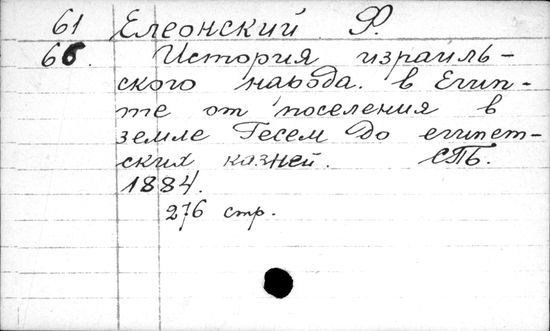 61 Елеонский Ф.
66. История израиль-
ского народа. в Егип-
те от поселения в
земле Гесем до египет-
ских казней. СПБ.
1884.
276 стр.